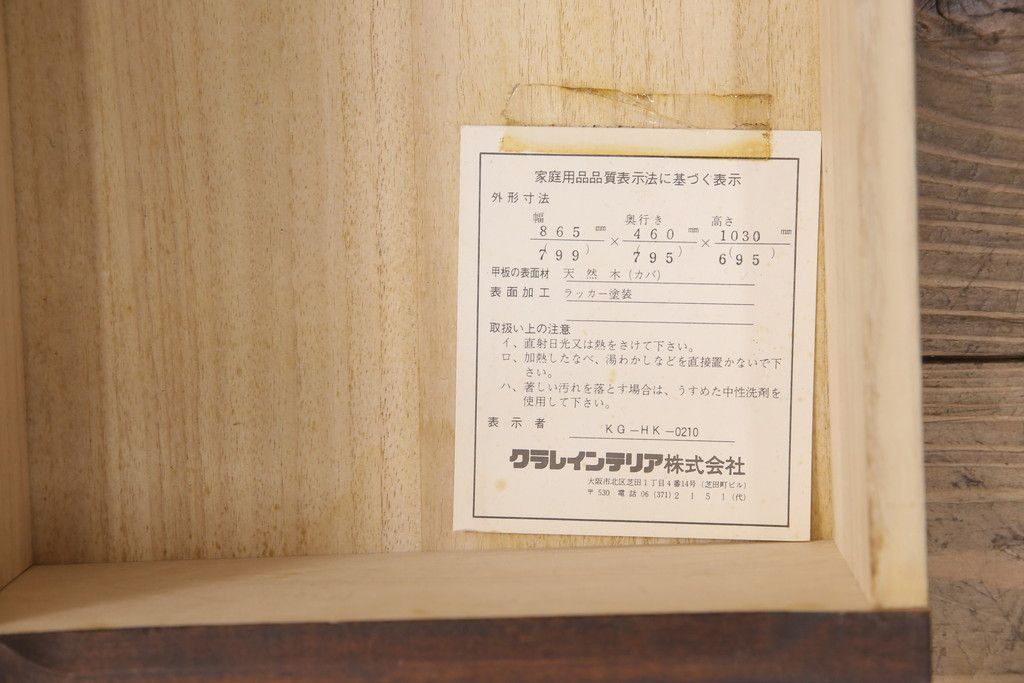 家庭用品品質表示法に基づく表示
外形寸法
幅 奥行き 高さ
865 mm × 460 mm × 1030 mm
(799) (795) (695)
甲板の表面材 天然木(カバ)
表面加工 ラッカー塗装
取扱い上の注意
イ、直射日光又は熱をさけて下さい。
ロ、加熱したなべ、湯わかしなどを直接置かないで下
さい。
ハ、著しい汚れを落とす場合は、うすめた中性洗剤を
使用して下さい。
表示者 KG-HK-0210
クラレインテリア株式会社
大阪市北区芝田1丁目4番14号(芝田町ビル)
〒530 電話 06(371)2151(代)